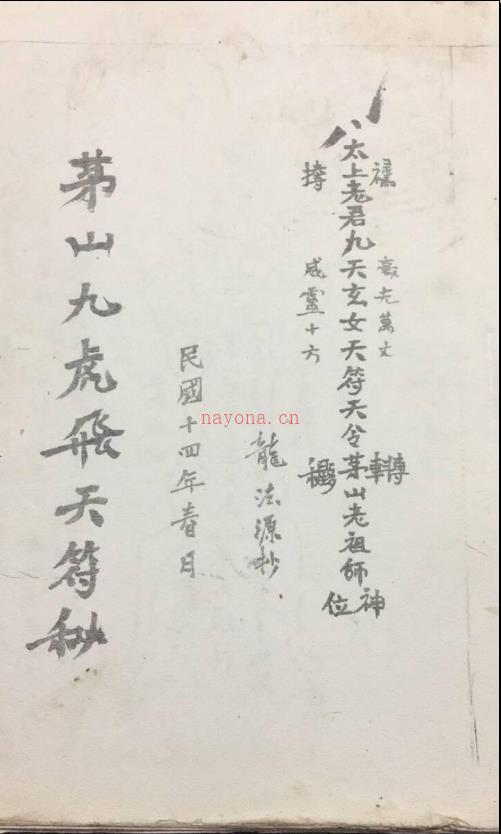 太上老君九天玄女天符天令茅山老祖師神位
毫光萬丈
威靈十方
轉
龍法源抄
民國十四年春月
茅山九虎飛天符秘
nayona.cn